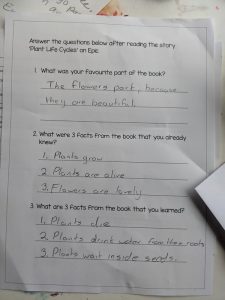 Answer the questions below after reading the story
'Plant Life Cycles' on Epic.
1. What was your favourite part of the book?
The flowers part, because
they are beautiful.
2. What were 3 facts from the book that you already
knew?
1. Plants grow
2. Plants are alive
3. Flowers are lovely
3. What are 3 facts from the book that you learned?
1. Plants die
2. Plants drink water from their roots
3. Plants wait inside seeds.